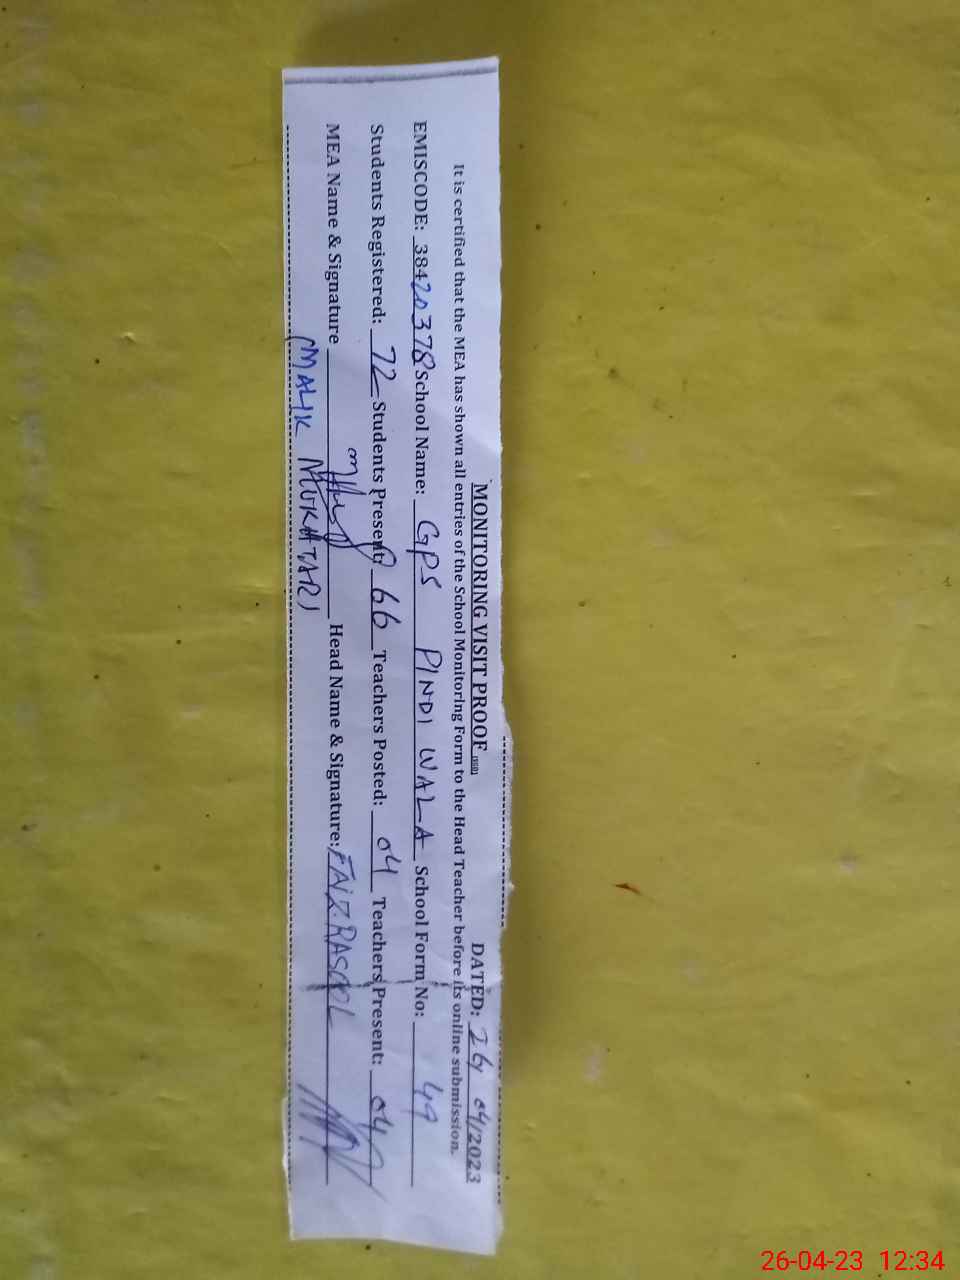 MONITORING VISIT PROOF DATED: 26/04/2023
It is certified that the MEA has shown all entries of the School Monitoring Form to the Head Teacher before its online submission.
EMISCODE: 38420378 School Name: GPS PINDI WALA School Form No: 49
Students Registered: 72 Students Present: 66 Teachers Posted: 04 Teachers Present: 04
MEA Name & Signature Head Name & Signature: FAIZ RASOOL
(MALIK MUKHTAR)
26-04-23 12:34